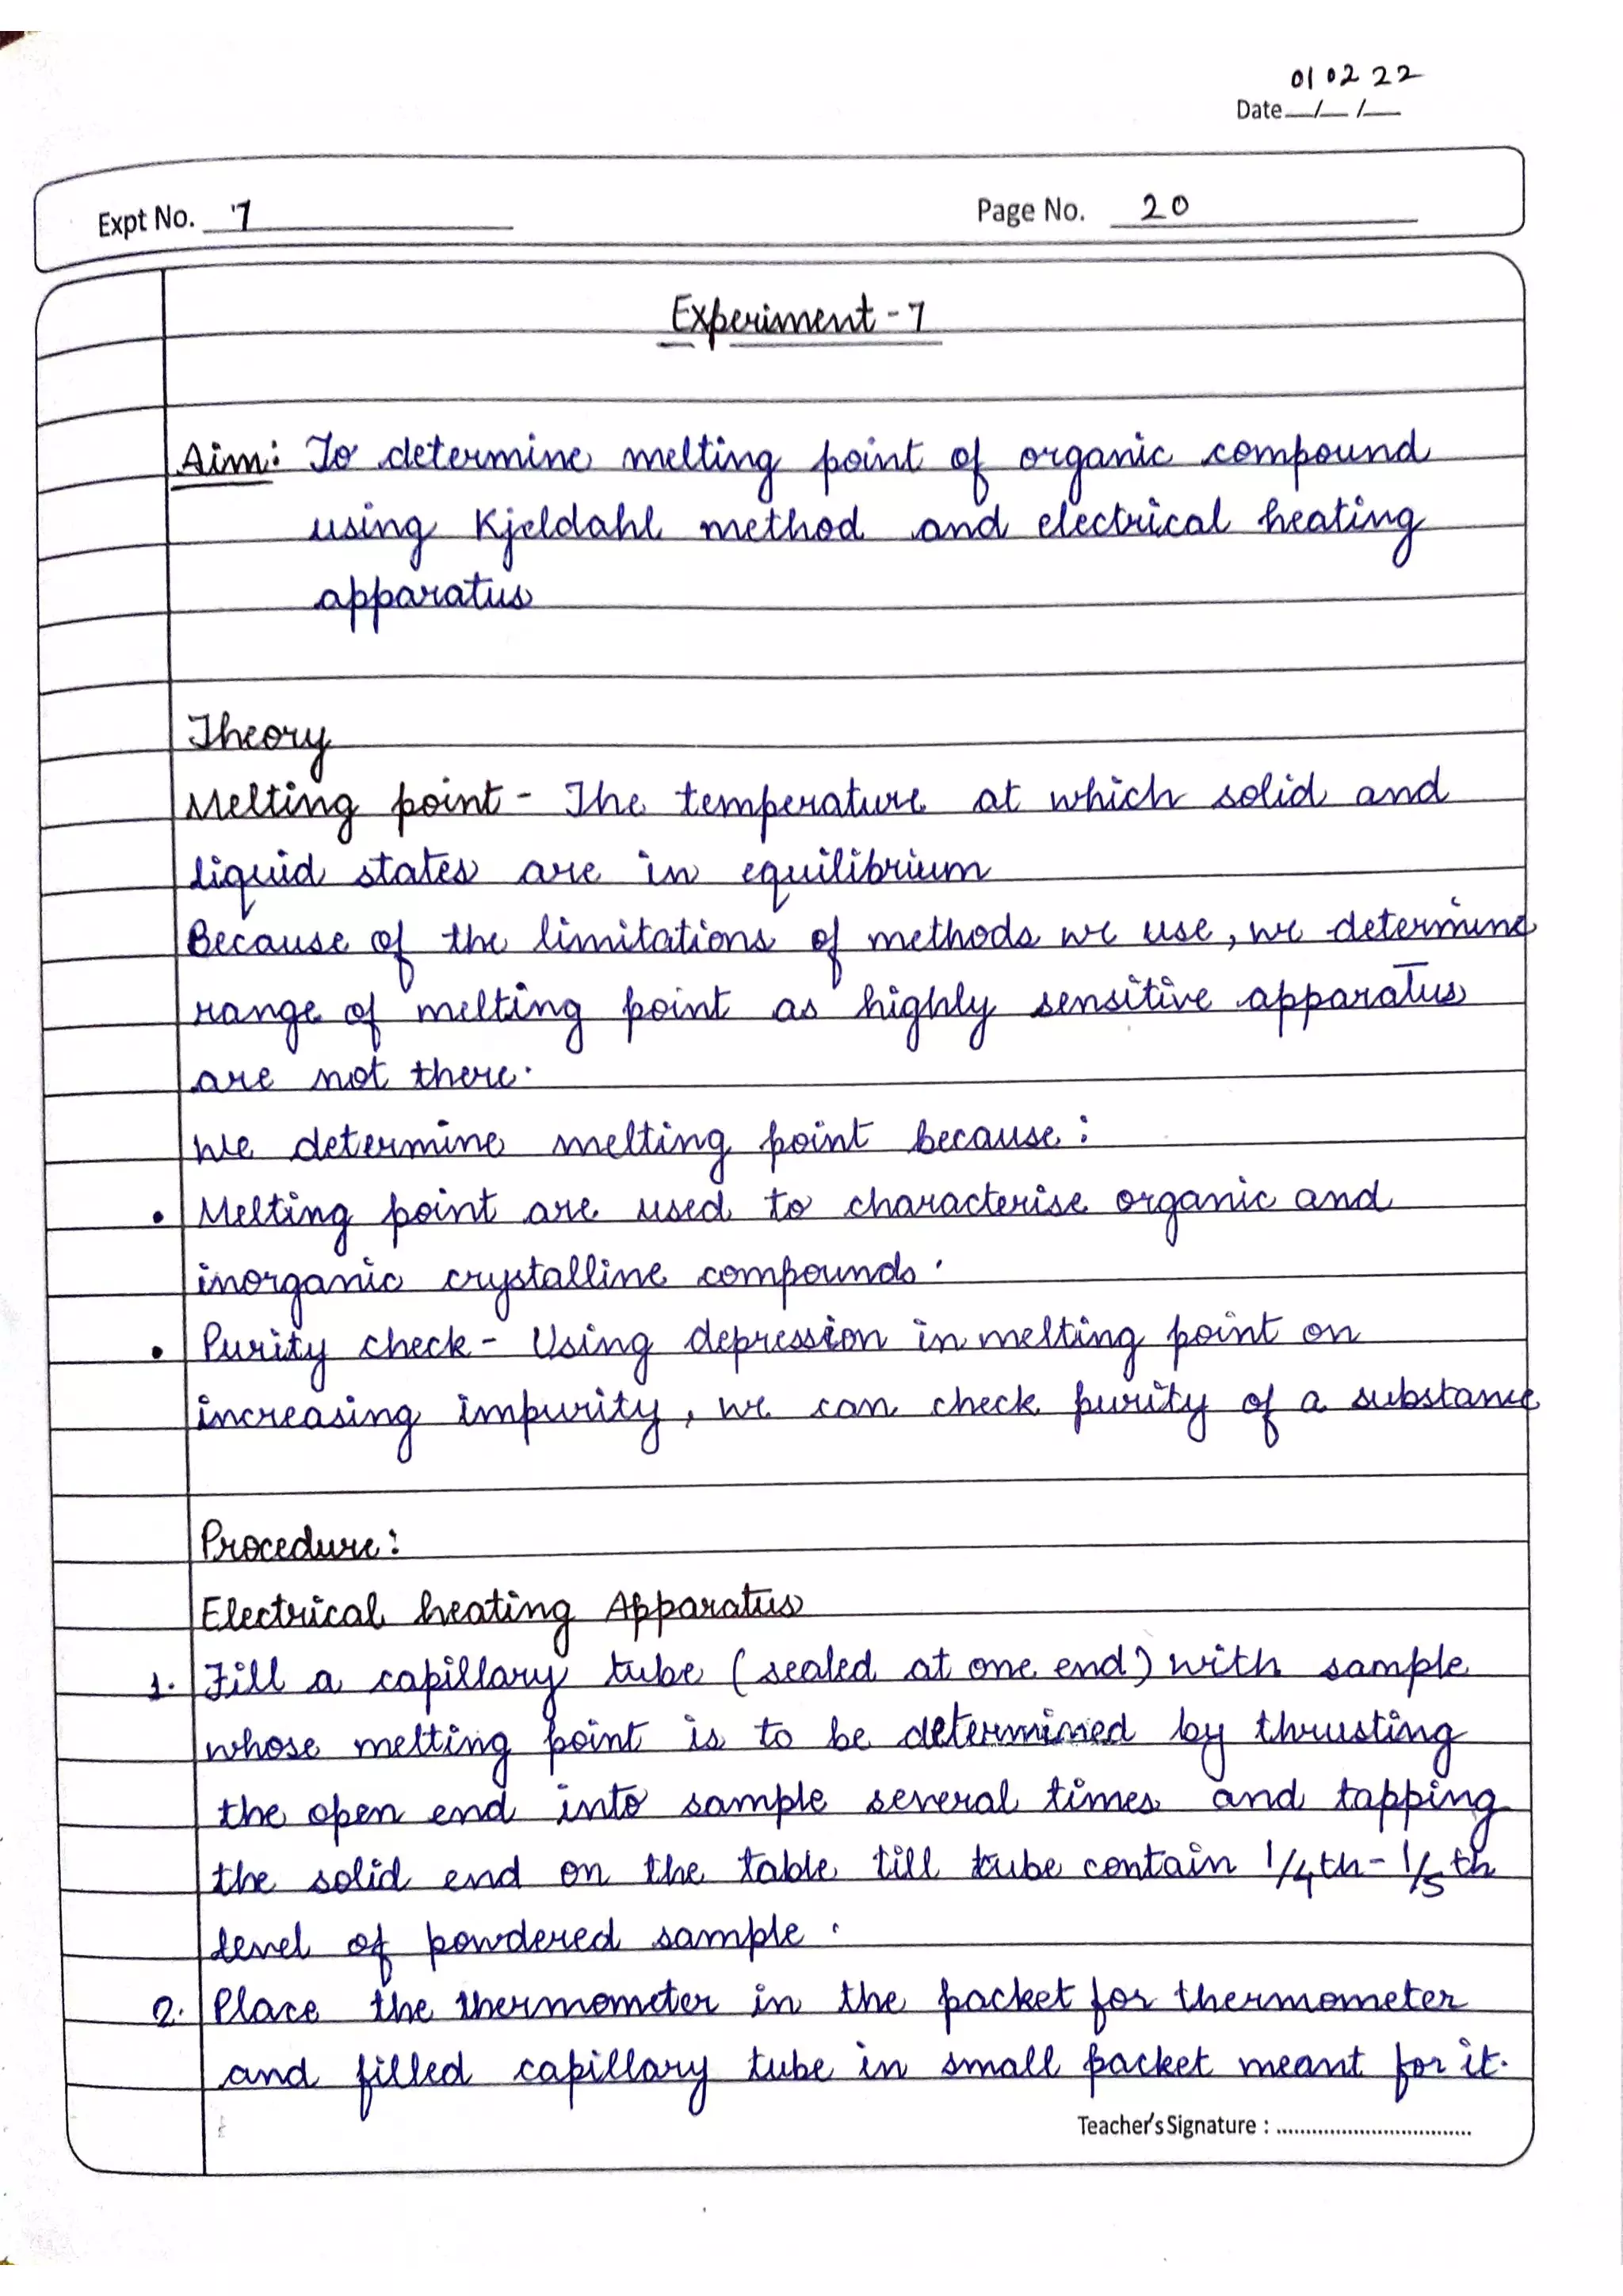 01 02 22
Date __/__/__
Expt No. 7
Page No. 20
Experiment - 7
Aim: To determine melting point of organic compound
using Kjeldahl method and electrical heating
apparatus
Theory
Melting point - The temperature at which solid and
liquid states are in equilibrium
Because of the limitations of methods we use, we determine
range of melting point as highly sensitive apparatus
are not there.
We determine melting point because:
• Melting point are used to characterise organic and
inorganic crystalline compounds.
• Purity check - Using depression in melting point on
increasing impurity, we can check purity of a substance
Procedure:
Electrical heating Apparatus
1. Fill a capillary tube (sealed at one end) with sample
whose melting point is to be determined by thrusting
the open end into sample several times and tapping
the solid end on the table till tube contain 1/4th - 1/5th
level of powdered sample.
2. Place the thermometer in the packet for thermometer
and filled capillary tube in small packet meant for it.
Teacher's Signature : ..................................